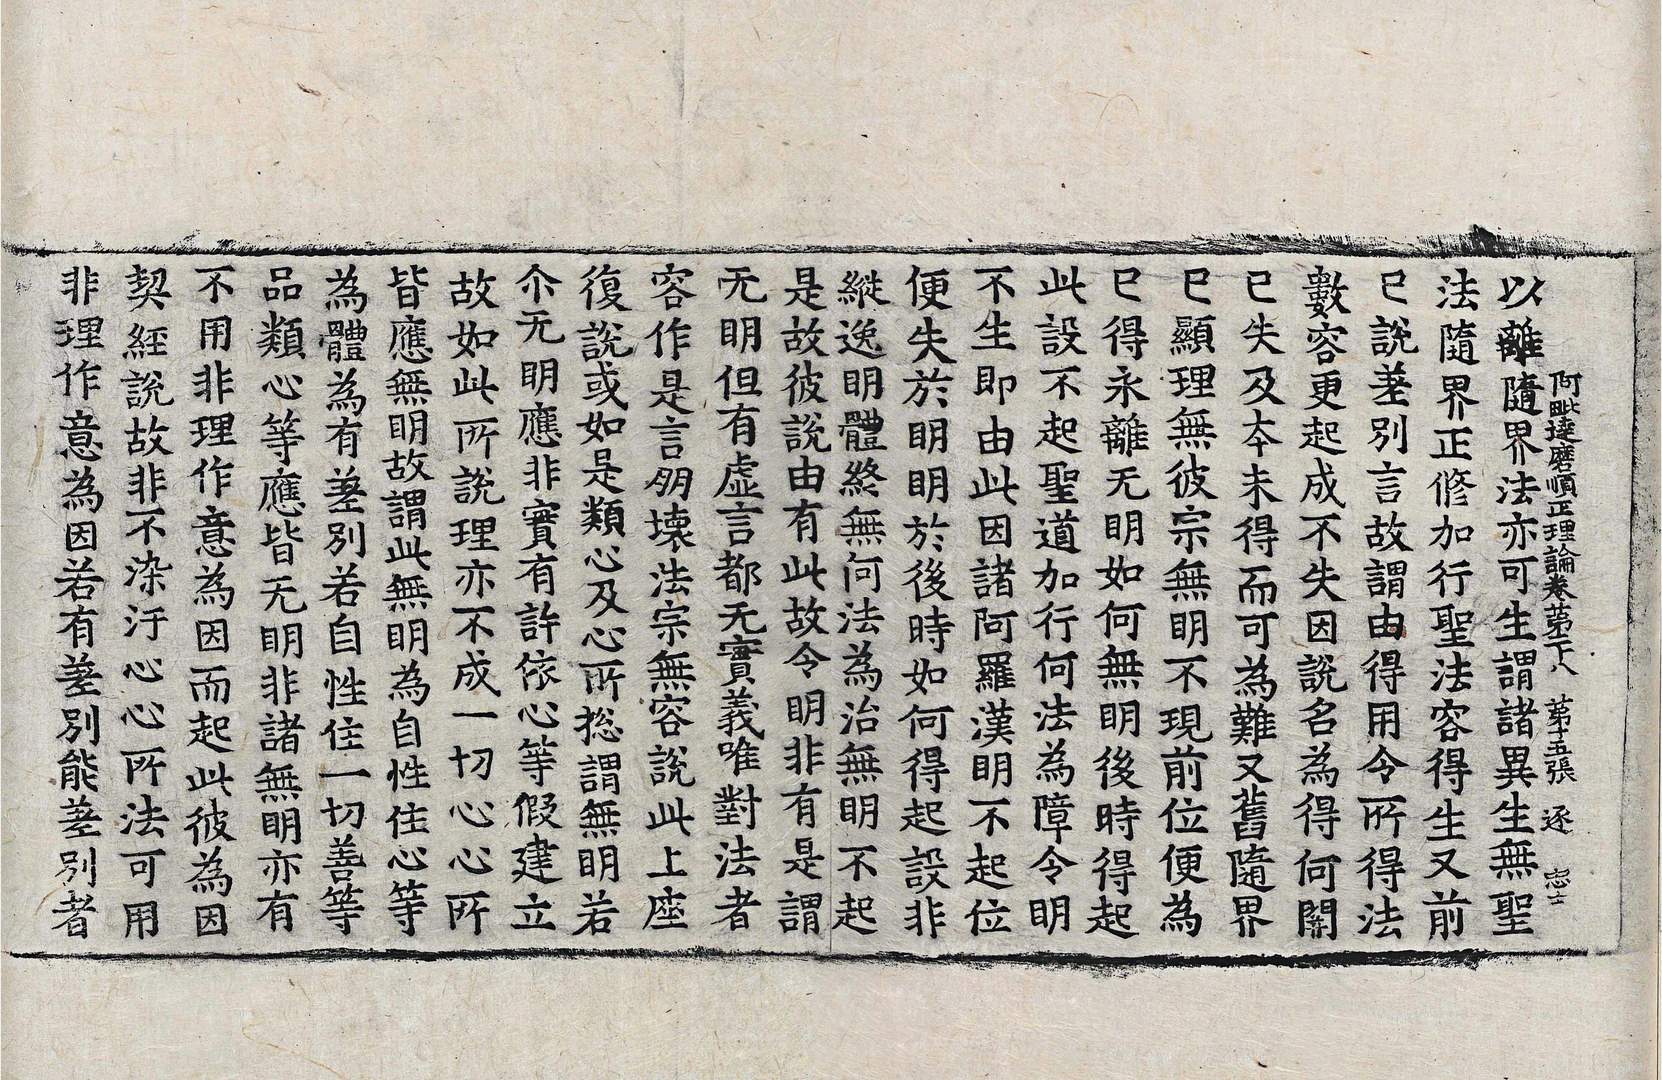 阿毗達磨順正理論卷第二十八 第十五張 逐 忠士
以離隨界法亦可生謂諸異生無聖
法隨界正修加行聖法容得生又前
已說差別言故謂由得用令所得法
數容更起成不失因說名為得何關
已失及本未得而可為難又舊隨界
已顯理無彼宗無明不現前位便為
已得永離无明如何無明後時得起
此設不起聖道加行何法為障令明
不生即由此因諸阿羅漢明不起位
便失於明明於後時如何得起設非
縱逸明體終無何法為治無明不起
是故彼說由有此故令明非有是謂
无明但有虛言都无實義唯對法者
容作是言朋壞法宗無容說此上座
復說或如是類心及心所揔謂無明若
尒无明應非實有許依心等假建立
故如此所說理亦不成一切心心所
皆應無明故謂此無明為自性住心等
為體為有差別若自性住一切善等
品類心等應皆无明非諸無明亦有
不用非理作意為因而起此彼為因
契經說故非不染汙心心所法可用
非理作意為因若有差別能差別者